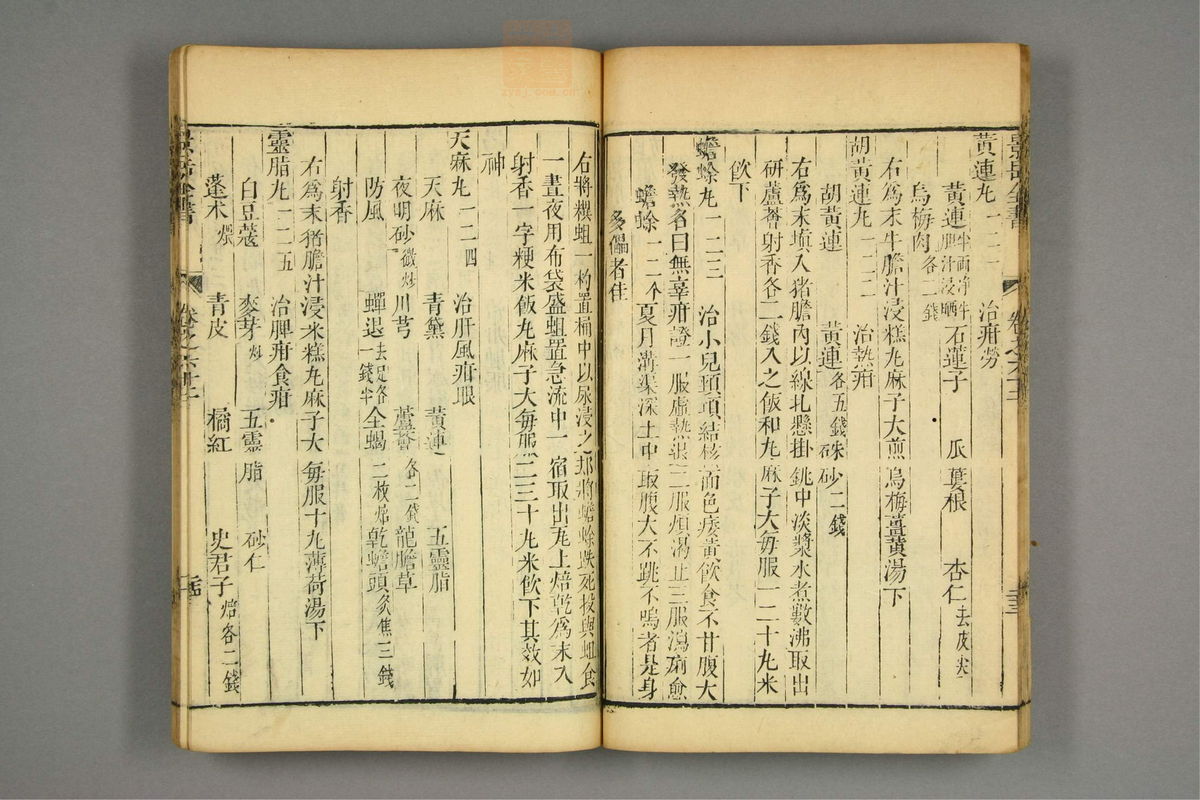 景岳全書
卷之六十三
黃連丸一二一 治疳勞
黃連半兩淨牛胆汁浸晒 石蓮子 瓜蔞根 杏仁去皮尖
烏梅肉各二錢
右為末牛膽汁浸糕丸麻子大煎烏梅薑黃湯下
胡黃連丸一二二 治熱疳
胡黃連 黃連各五錢 硃砂二錢
右為末填入猪膽內以線扎懸掛銚中淡漿水煮數沸取出
研蘆薈射香各二錢入之飯和丸麻子大每服一二十丸米
飲下
蟾蜍丸一二三 治小兒頸項結核面色痿黃飲食不甘腹大
發熱名曰無辜疳證一服虛熱退二服煩渴止三服瀉痢愈
蟾蜍一二个夏月溝渠深土中取腹大不跳不鳴者是身
多㿔者佳
右將糞蛆一杓置桶中以尿浸之却將蟾蜍跌死投與蛆食
一晝夜用布袋盛蛆置急流中一宿取出瓦上焙乾為末入
射香一字粳米飯丸麻子大每服二三十丸米飲下其效如
神
天麻丸一二四 治肝風疳眼
天麻 青黛 黃連 五靈脂
夜明砂微炒 川芎 蘆薈各二錢 龍膽草
防風 蟬退去足各一錢半 全蝎二枚焙 乾蟾頭炙焦三錢
射香
右為末猪膽汁浸米糕丸麻子大每服十丸薄荷湯下
靈脂丸一二五 治脾疳食疳
白豆蔻 麥芽炒 五靈脂 砂仁
蓬术煨 青皮 橘紅 史君子焙各二錢
景岳全書